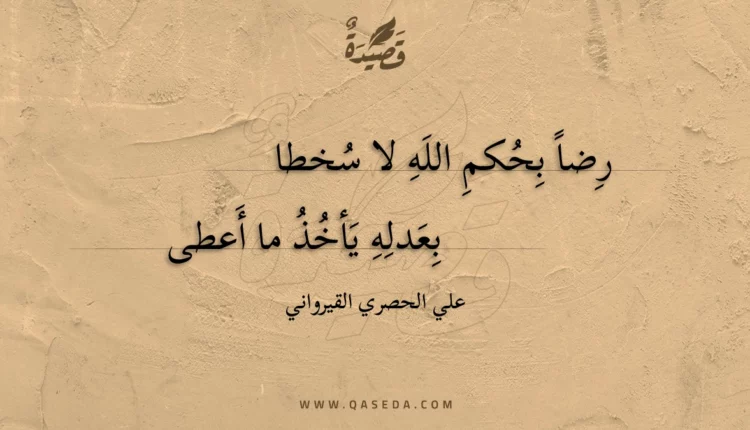 قَصِيْدَةٌ
رِضاً بِحُكمِ اللَهِ لا سُخطا
بِعَدلِهِ يَأخُذُ ما أَعطى
علي الحصري القيرواني
WWW.QASEDA.COM